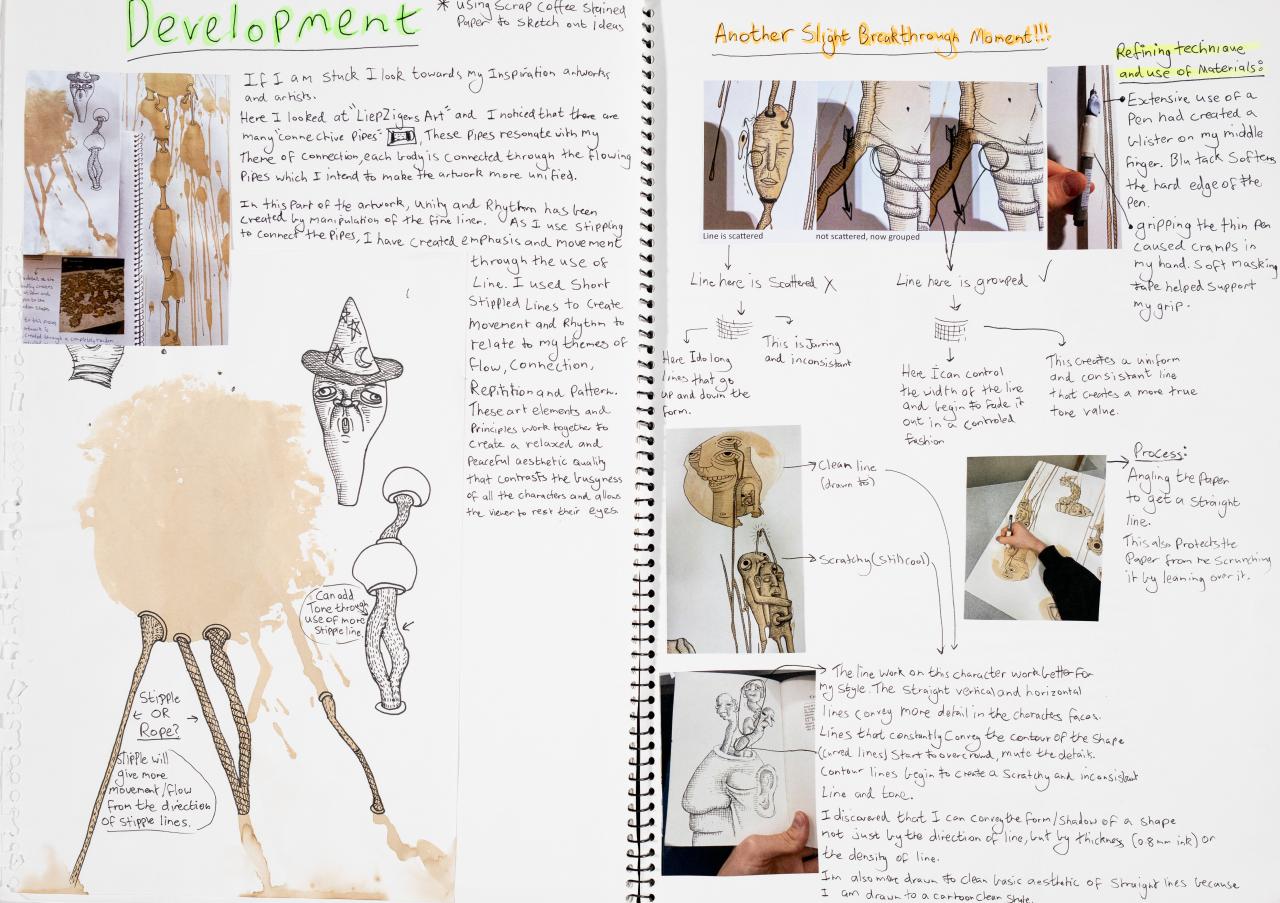 Development
* using Scrap Coffee Stained
Paper to Sketch out ideas
If I am stuck I look towards my Inspiration artworks
and artists.
Here I looked at "LiepZigers Art" and I noticed that there are
many "connective Pipes" , These Pipes resonate with my
Theme of connection, each body is connected through the flowing
Pipes which I intend to make the artwork more unified.
In this part of the artwork, Unity and Rhythm has been
created by manipulation of the fine liner. As I use Stipping
to connect the Pipes, I have created emphasis and movement
through the use of
Line. I used Short
Stippled Lines to Create
Movement and Rhythm to
relate to my themes of
flow, Connection,
Repitition and Pattern.
These art elements and
Principles work together to
Create a relaxed and
Peaceful aesthetic quality
that contrasts the busyness
of all the characters and allows
the viewer to rest their eyes.
Can add
Tone through
use of more
Stipple line.
Stipple
OR
Rope?
Stipple will
give more
movement/flow
from the direction
of Stipple lines.
Another Slight Breakthrough Moment!!!
Line is scattered
not scattered, now grouped
Line here is Scattered X
Line here is grouped ✓
Here I do long
lines that go
up and down the
form.
This is Jarring
and inconsistant
Here I can control
the width of the line
and begin to fade it
out in a controled
fashion
This creates a uniform
and consistant line
that creates a more true
tone value.
Refining technique
and use of Materials:
Extensive use of a
Pen had created a
blister on my middle
finger. Blu tack Softens
the hard edge of the
Pen.
gripping the thin Pen
caused cramps in
my hand. Soft masking
tape helped Support
my grip.
Clean line
(drawn to)
Scratchy (still cool)
Process:
Angling the Paper
to get a Straight
line.
This also Protects the
Paper from me Scrunching
it by leaning over it.
The line work on this character work better for
my Style. The Straight vertical and horizontal
lines convey more detail in the characters faces.
Lines that constantly Convey the contour of the Shape
(curved lines) Start to overcrowd, mute the details.
Contour lines begin to create a Scratchy and inconsistant
Line and tone.
I discovered that I can convey the form/shadow of a shape
not just by the direction of line, but by thickness (0.8mm ink) or
the density of line.
Im also more drawn to clean basic aesthetic of Straight lines because
I am drawn to a cartoon Clean Style.